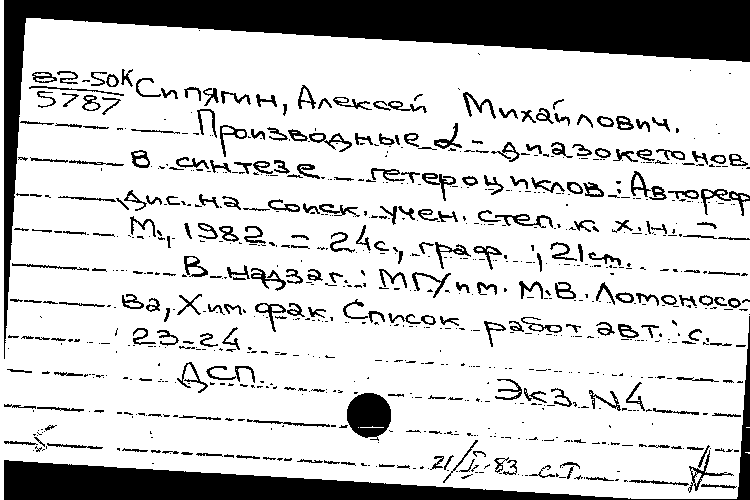 82-50К
5787
Сипягин, Алексей Михайлович.
Производные α-диазокетонов
в синтезе гетероциклов: Автореф
дис. на соиск. учен. степ. к. х. н. –
М., 1982. – 24с., граф. ; 21 cm.
В надзаг.: МГУ им. М.В. Ломоносо-
ва, Хим. фак. Список работ авт.: с.
23-24.
ДСП.
Экз. N4
83 с.Т.